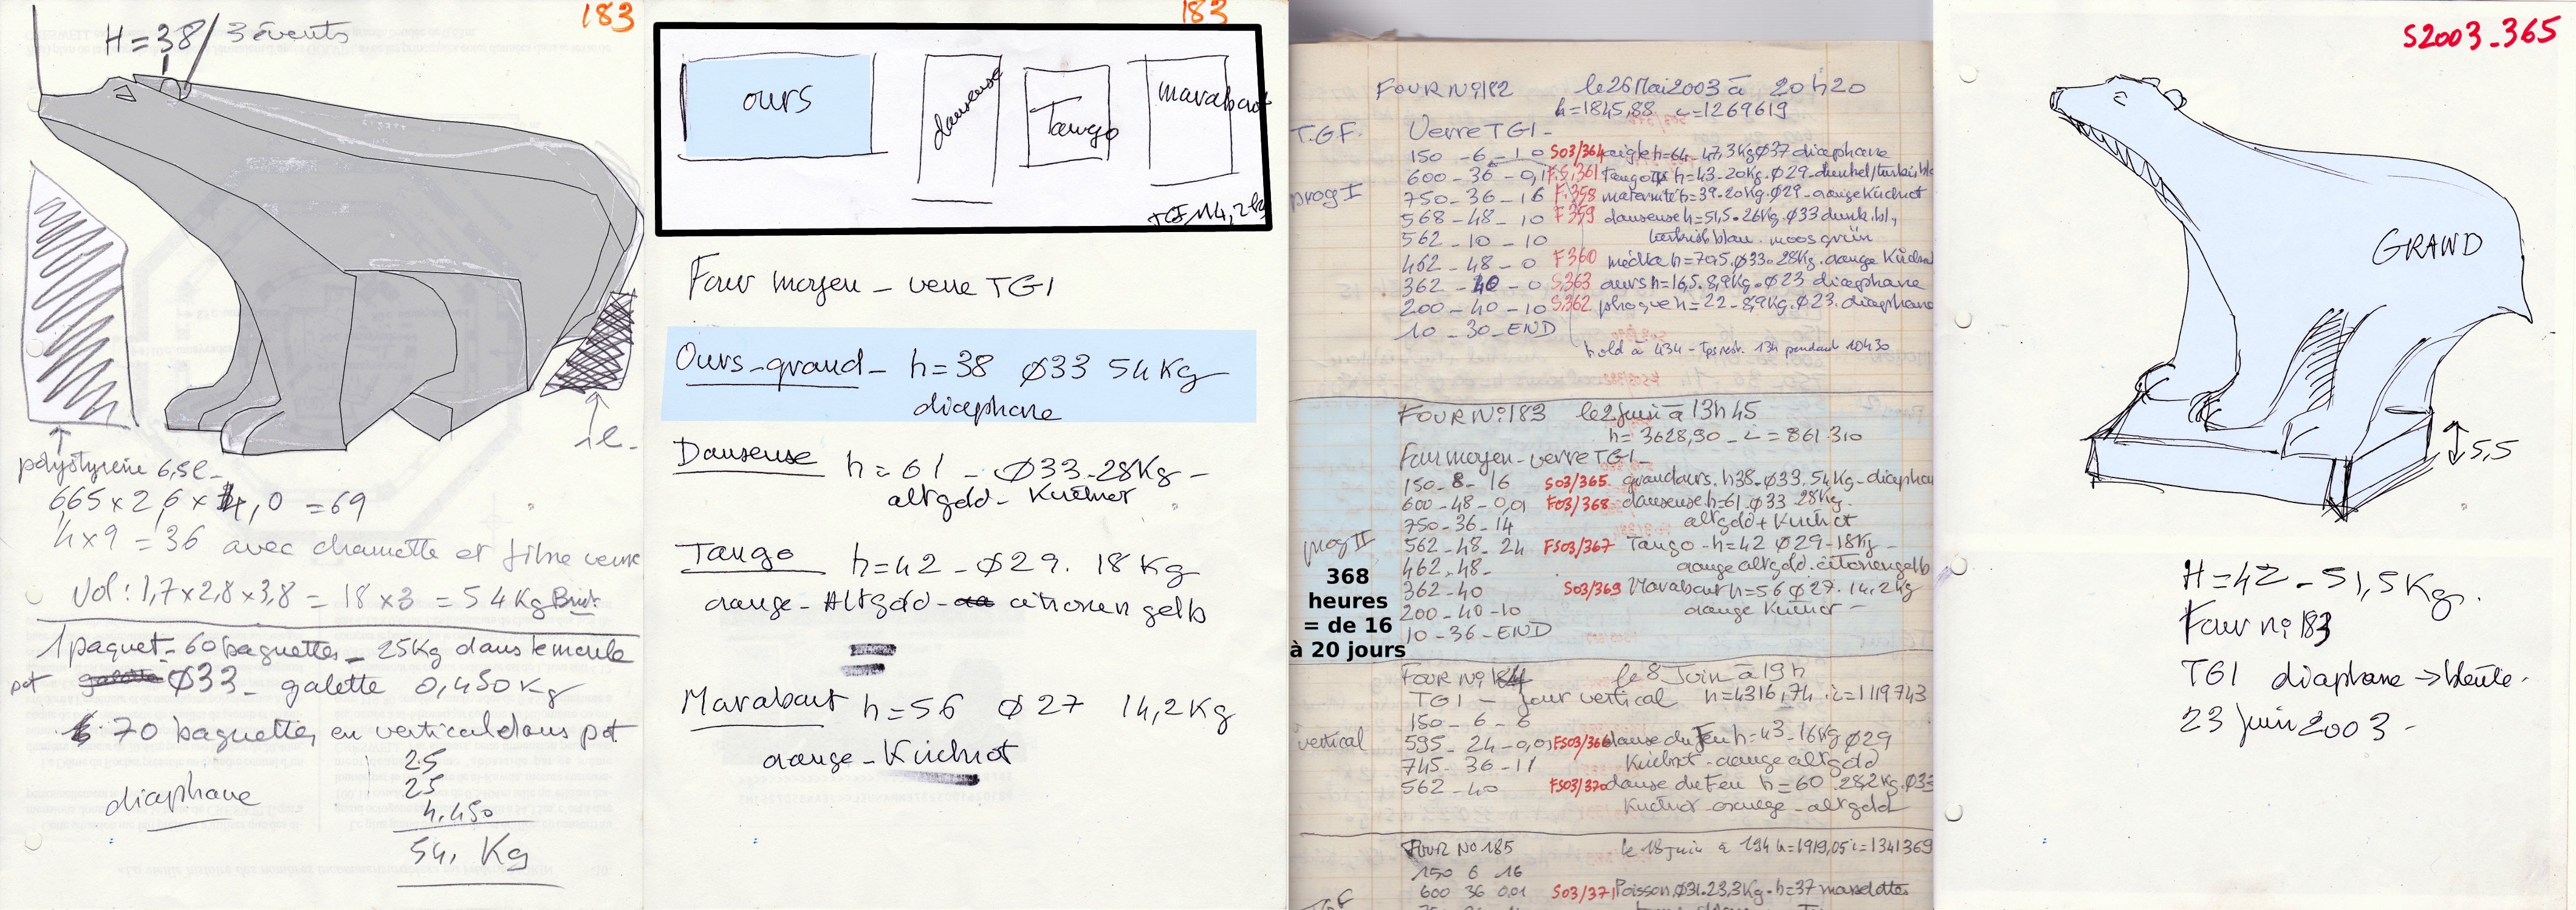 183
H=38 / 3 évents
polystyrène 6,5l-
1l-
665 x 2,6 x 4,0 = 69
4x9 = 36 avec chamotte et fibre verre
Vol: 1,7 x 2,8 x 3,8 = 18 x 3 = 54 Kg Brut
1 paquet = 60 baguettes - 25Kg dans le moule
pot Ø33 - galette 0,450 Kg
70 baguettes en vertical dans pot
25
25
diaphane
4,450
54, Kg
183
ours
danseuse
Tango
marabout
TGF 14,2kg
Four moyen - verre TGI
Ours-grand - h=38 Ø33 54Kg
diaphane
Danseuse h=61 - Ø33-28Kg -
altgold - Kuchrot
Tango h=42 - Ø29. 18Kg
orange - Altgold - citronen gelb
Marabout h=56 Ø27 14,2Kg
orange - Kuchrot
FOUR No:182 le 26 Mai 2003 à 20h20
h=1845,88 c=1269619
T.G.F. Verre TGI -
150 - 6 - 10 S03/364 aigle h=64 - 47,3Kg Ø37 diaphane
600 - 36 - 0,1 F.S.361 Tango h=43-20Kg.Ø29
prog I 750 - 36 - 16 F.358 maternité h=39-20Kg.Ø29 - orange Kuchrot
568 - 48 - 10 F359 danseuse h=51,5-26Kg.Ø33 dunk.bl,
562 - 10 - 10 turkisblau. moosgrün
462 - 48 - 0 F360
362 - 40 - 0 S.363 ours h=16,5.8,9Kg.Ø23 diaphane
200 - 40 - 10 S.362 phoque h=22-8,9Kg.Ø23.diaphane
10 - 30 - END
hold à 434 - Tps rest. 13h pendant 10h30
FOUR No:183 le 2 Juin à 13h45
h=3628,90 - c=861310
Four moyen - verre TGI -
150 - 8 - 16 S03/365. grand ours. h38-Ø33.54Kg-diapha
600 - 48 - 0,01 F03/368 danseuse h=61 Ø33 28Kg.
750 - 36 - 14 altgold + Kuchrot
prog II 562 - 48 - 24 FS03/367 Tango - h=42 Ø29-18Kg -
462 - 48 - orange altgold.citronengelb
368
heures
= de 16
à 20 jours
362 - 40 S03/369 Marabout h=56 Ø27.14,2Kg
200 - 40 - 10 orange Kuchrot -
10 - 36 - END
FOUR No:184 le 8 Juin à 19h
TGI - four vertical h=4316,74 - c=1119743
150 - 6 - 6
vertical 595 - 24 - 0,01 FS03/366 danse du Feu h=43-16Kg Ø29
745 - 36 - 11 Kuchrot - orange altgold
562 - 40 FS03/370 danse du Feu h=60.28,2Kg.Ø33
Kuchrot - orange - altgold
FOUR No 185 le 18 juin à 19h h=1919,05 c=1341369
150 6 16
600 36 0,01 S03/371 Poisson.Ø31.23,3Kg.h=37
S2003-365
GRAND
5,5
H=42 - 51,5Kg.
Four no 183
TGI diaphane → bleuté.
23 juin 2003 -